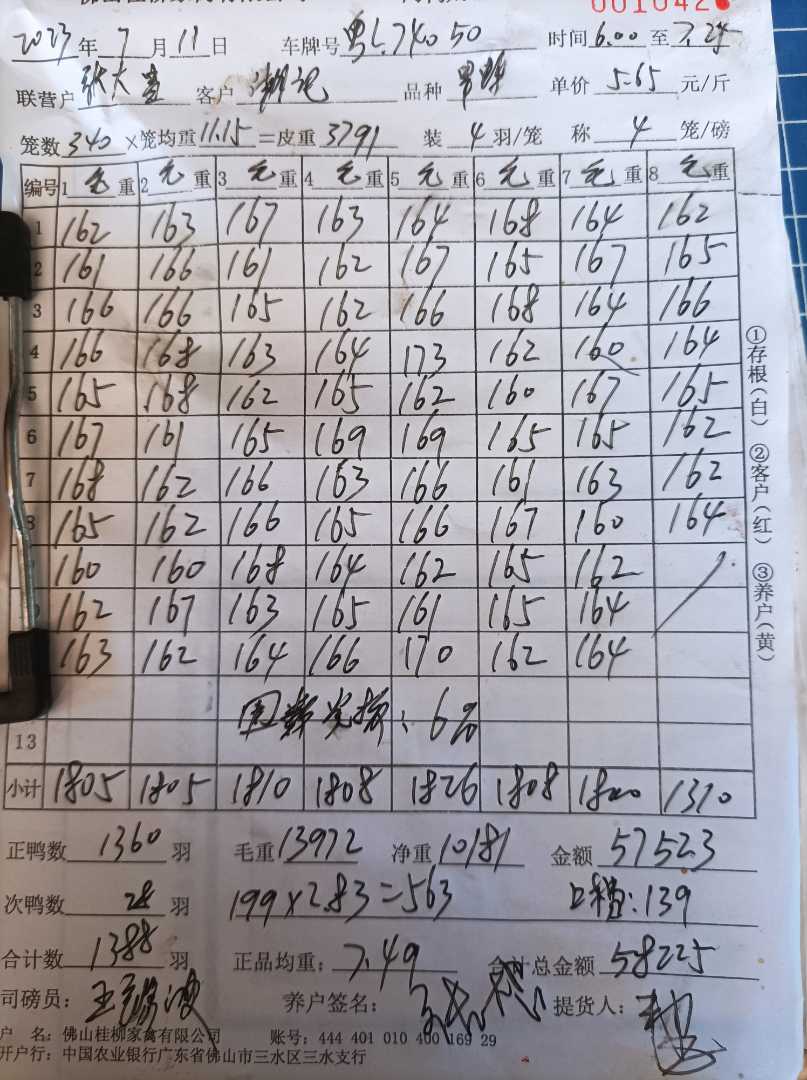 001042
2023年7月11日 车牌号 粤L74050 时间6.00至7.25
联营户 张大 客户 记 品种 单价 5.65 元/斤
笼数340×笼均重11.15=皮重3791 装4羽/笼 称4笼/磅
编号 1毛重 2毛重 3毛重 4毛重 5毛重 6毛重 7毛重 8毛重
1 162 163 167 163 164 168 164 162
2 161 166 161 162 167 165 167 165
3 166 166 165 162 166 168 164 166
4 166 168 163 164 173 162 160 164
5 165 168 162 165 162 160 167 165
6 167 161 165 169 169 165 165 162
7 168 162 166 163 166 161 163 162
8 165 162 166 165 166 167 160 164
160 160 168 164 162 165 162
162 167 163 165 161 165 164
163 162 164 166 170 162 164
: 6%
13
小计 1805 1805 1810 1808 1826 1808 1800 1310
正鸭数 1360 羽 毛重 13972 净重 10181 金额 57523
次鸭数 28 羽 199×2.83=563 口粮:139
合计数 1388 羽 正品均重: 7.49 合计总金额 58225
司磅员: 王 养户签名: 提货人:
户 名: 佛山桂柳家禽有限公司 账号: 444 401 010 400 169 29
开户行: 中国农业银行广东省佛山市三水区三水支行
①存根(白) ②客户(红) ③养户(黄)